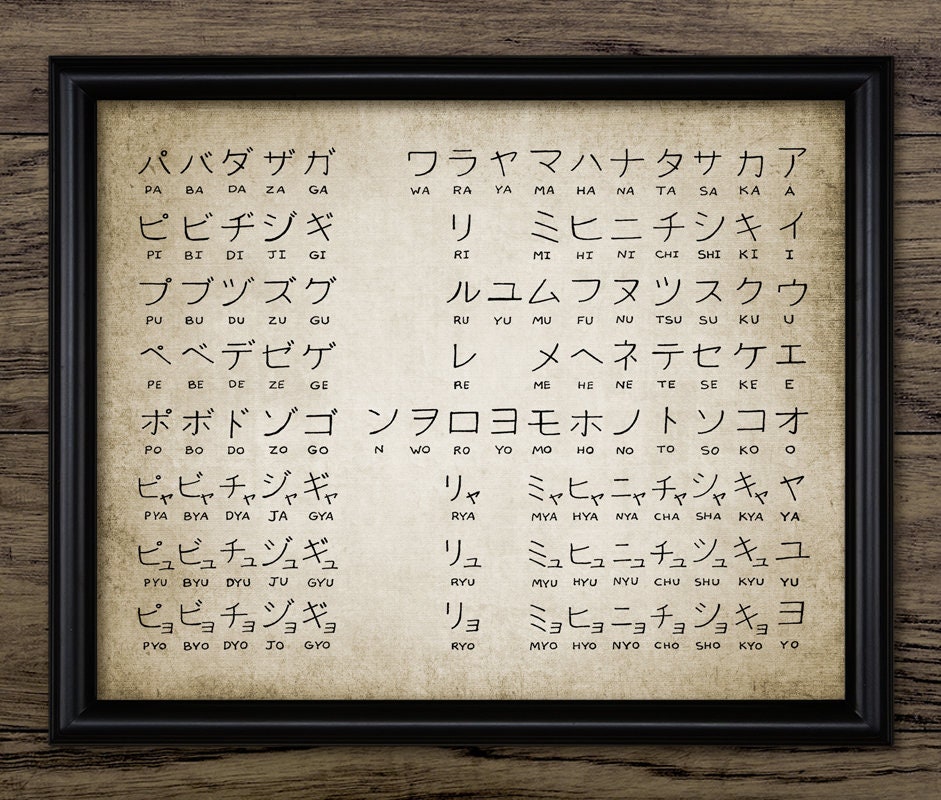 パ バ ダ ザ ガ ワ ラ ヤ マ ハ ナ タ サ カ ア
PA BA DA ZA GA WA RA YA MA HA NA TA SA KA A
ピ ビ ヂ ジ ギ リ ミ ヒ ニ チ シ キ イ
PI BI DI JI GI RI MI HI NI CHI SHI KI I
プ ブ ヅ ズ グ ル ユ ム フ ヌ ツ ス ク ウ
PU BU DU ZU GU RU YU MU FU NU TSU SU KU U
ペ ベ デ ゼ ゲ レ メ ヘ ネ テ セ ケ エ
PE BE DE ZE GE RE ME HE NE TE SE KE E
ポ ボ ド ゾ ゴ ン ヲ ロ ヨ モ ホ ノ ト ソ コ オ
PO BO DO ZO GO N WO RO YO MO HO NO TO SO KO O
ピャ ビャ チャ ジャ ギャ リャ ミャ ヒャ ニャ チャ シャ キャ ヤ
PYA BYA DYA JA GYA RYA MYA HYA NYA CHA SHA KYA YA
ピュ ビュ チュ ジュ ギュ リュ ミュ ヒュ ニュ チュ シュ キュ ユ
PYU BYU DYU JU GYU RYU MYU HYU NYU CHU SHU KYU YU
ピョ ビョ チョ ジョ ギョ リョ ミョ ヒョ ニョ チョ ショ キョ ヨ
PYO BYO DYO JO GYO RYO MYO HYO NYO CHO SHO KYO YO